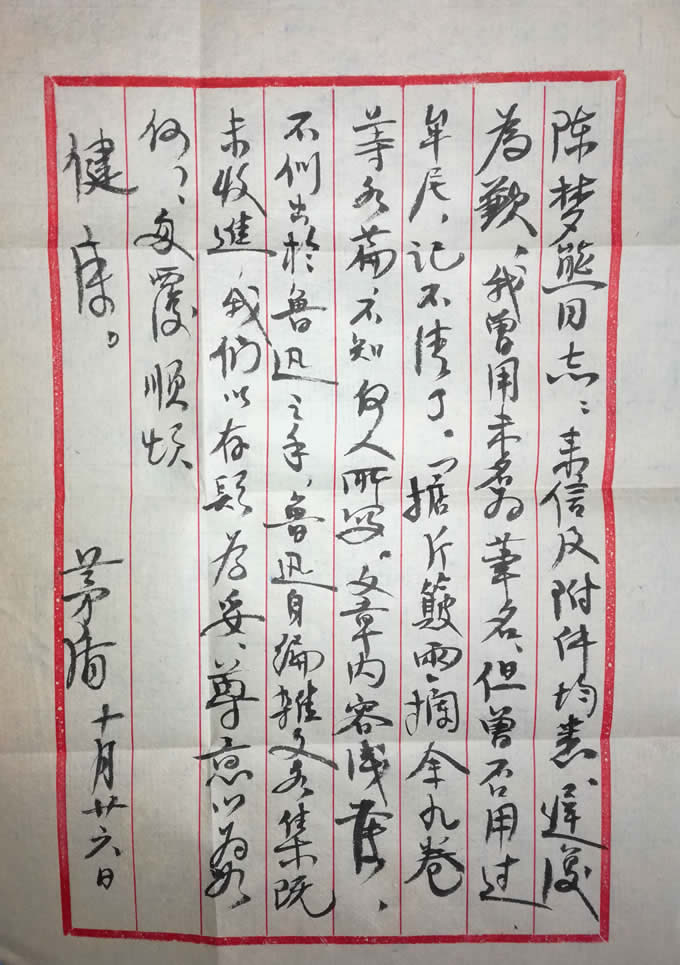 陈梦熊同志：来信及附件均悉、遲復
為歉、我曾用未名为筆名、但曾否用过
牟尼，记不清了。掂斤簸兩·摘余九卷
等各篇，不知何人所写。文章内容浅薄，
不似出於鲁迅之手，鲁迅自编雜文各集既
未收進，我们以存疑为妥、尊意以为如
何？匆覆順颂
健康。
茅盾 十月廿六日